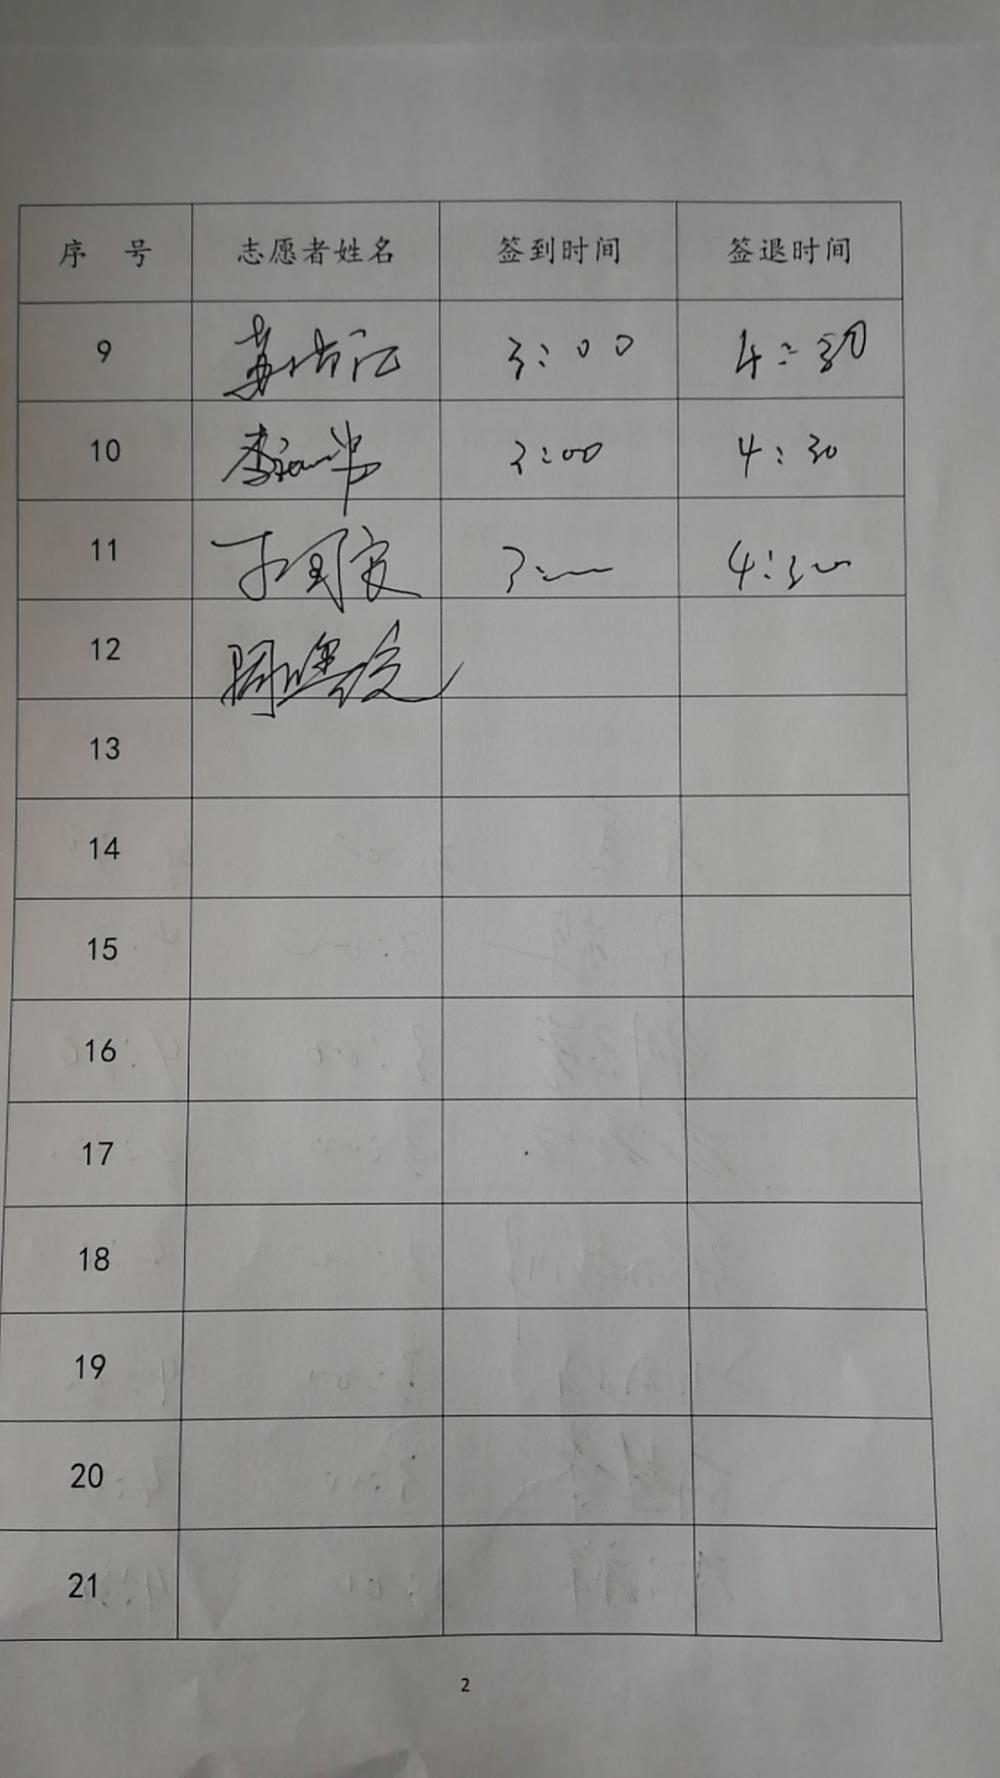 序 号 志愿者姓名 签到时间 签退时间
9 3:00 4:30
10 李 3:00 4:30
11 3:00 4:30
12 周
13
14
15
16
17
18
19
20
21
2